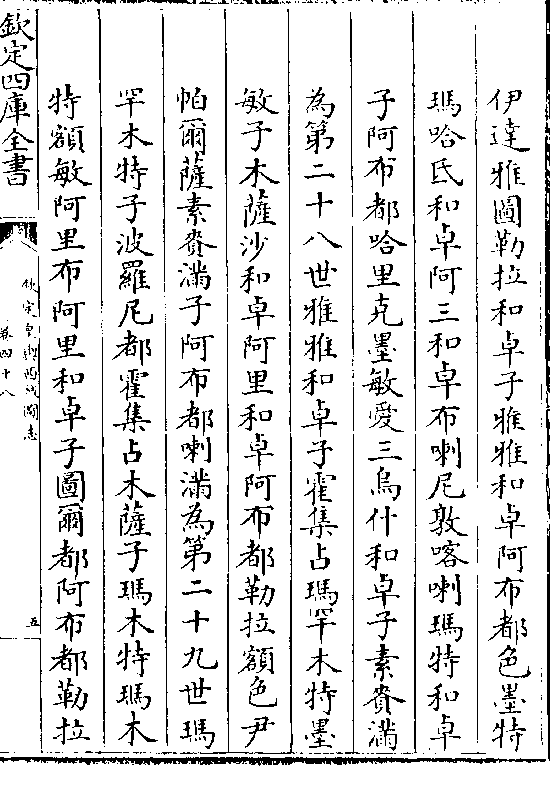 伊達雅圖勒拉和卓子雅雅和卓阿布都色墨特
瑪哈氐和卓阿三和卓布喇尼敦喀喇瑪特和卓
子阿布都哈里克墨敏愛三烏什和卓子素賚滿
為第二十八世雅雅和卓子霍集占瑪罕木特墨
敏子木薩沙和卓阿里和卓阿布都勒拉額色尹
帕爾薩素賚滿子阿布都喇滿為第二十九世瑪
罕木特子波羅尼都霍集占木薩子瑪木特瑪木
特額敏阿里布阿里和卓子圖爾都阿布都勒拉
欽定四庫全書
欽定皇輿西域圖志
卷四十八
五